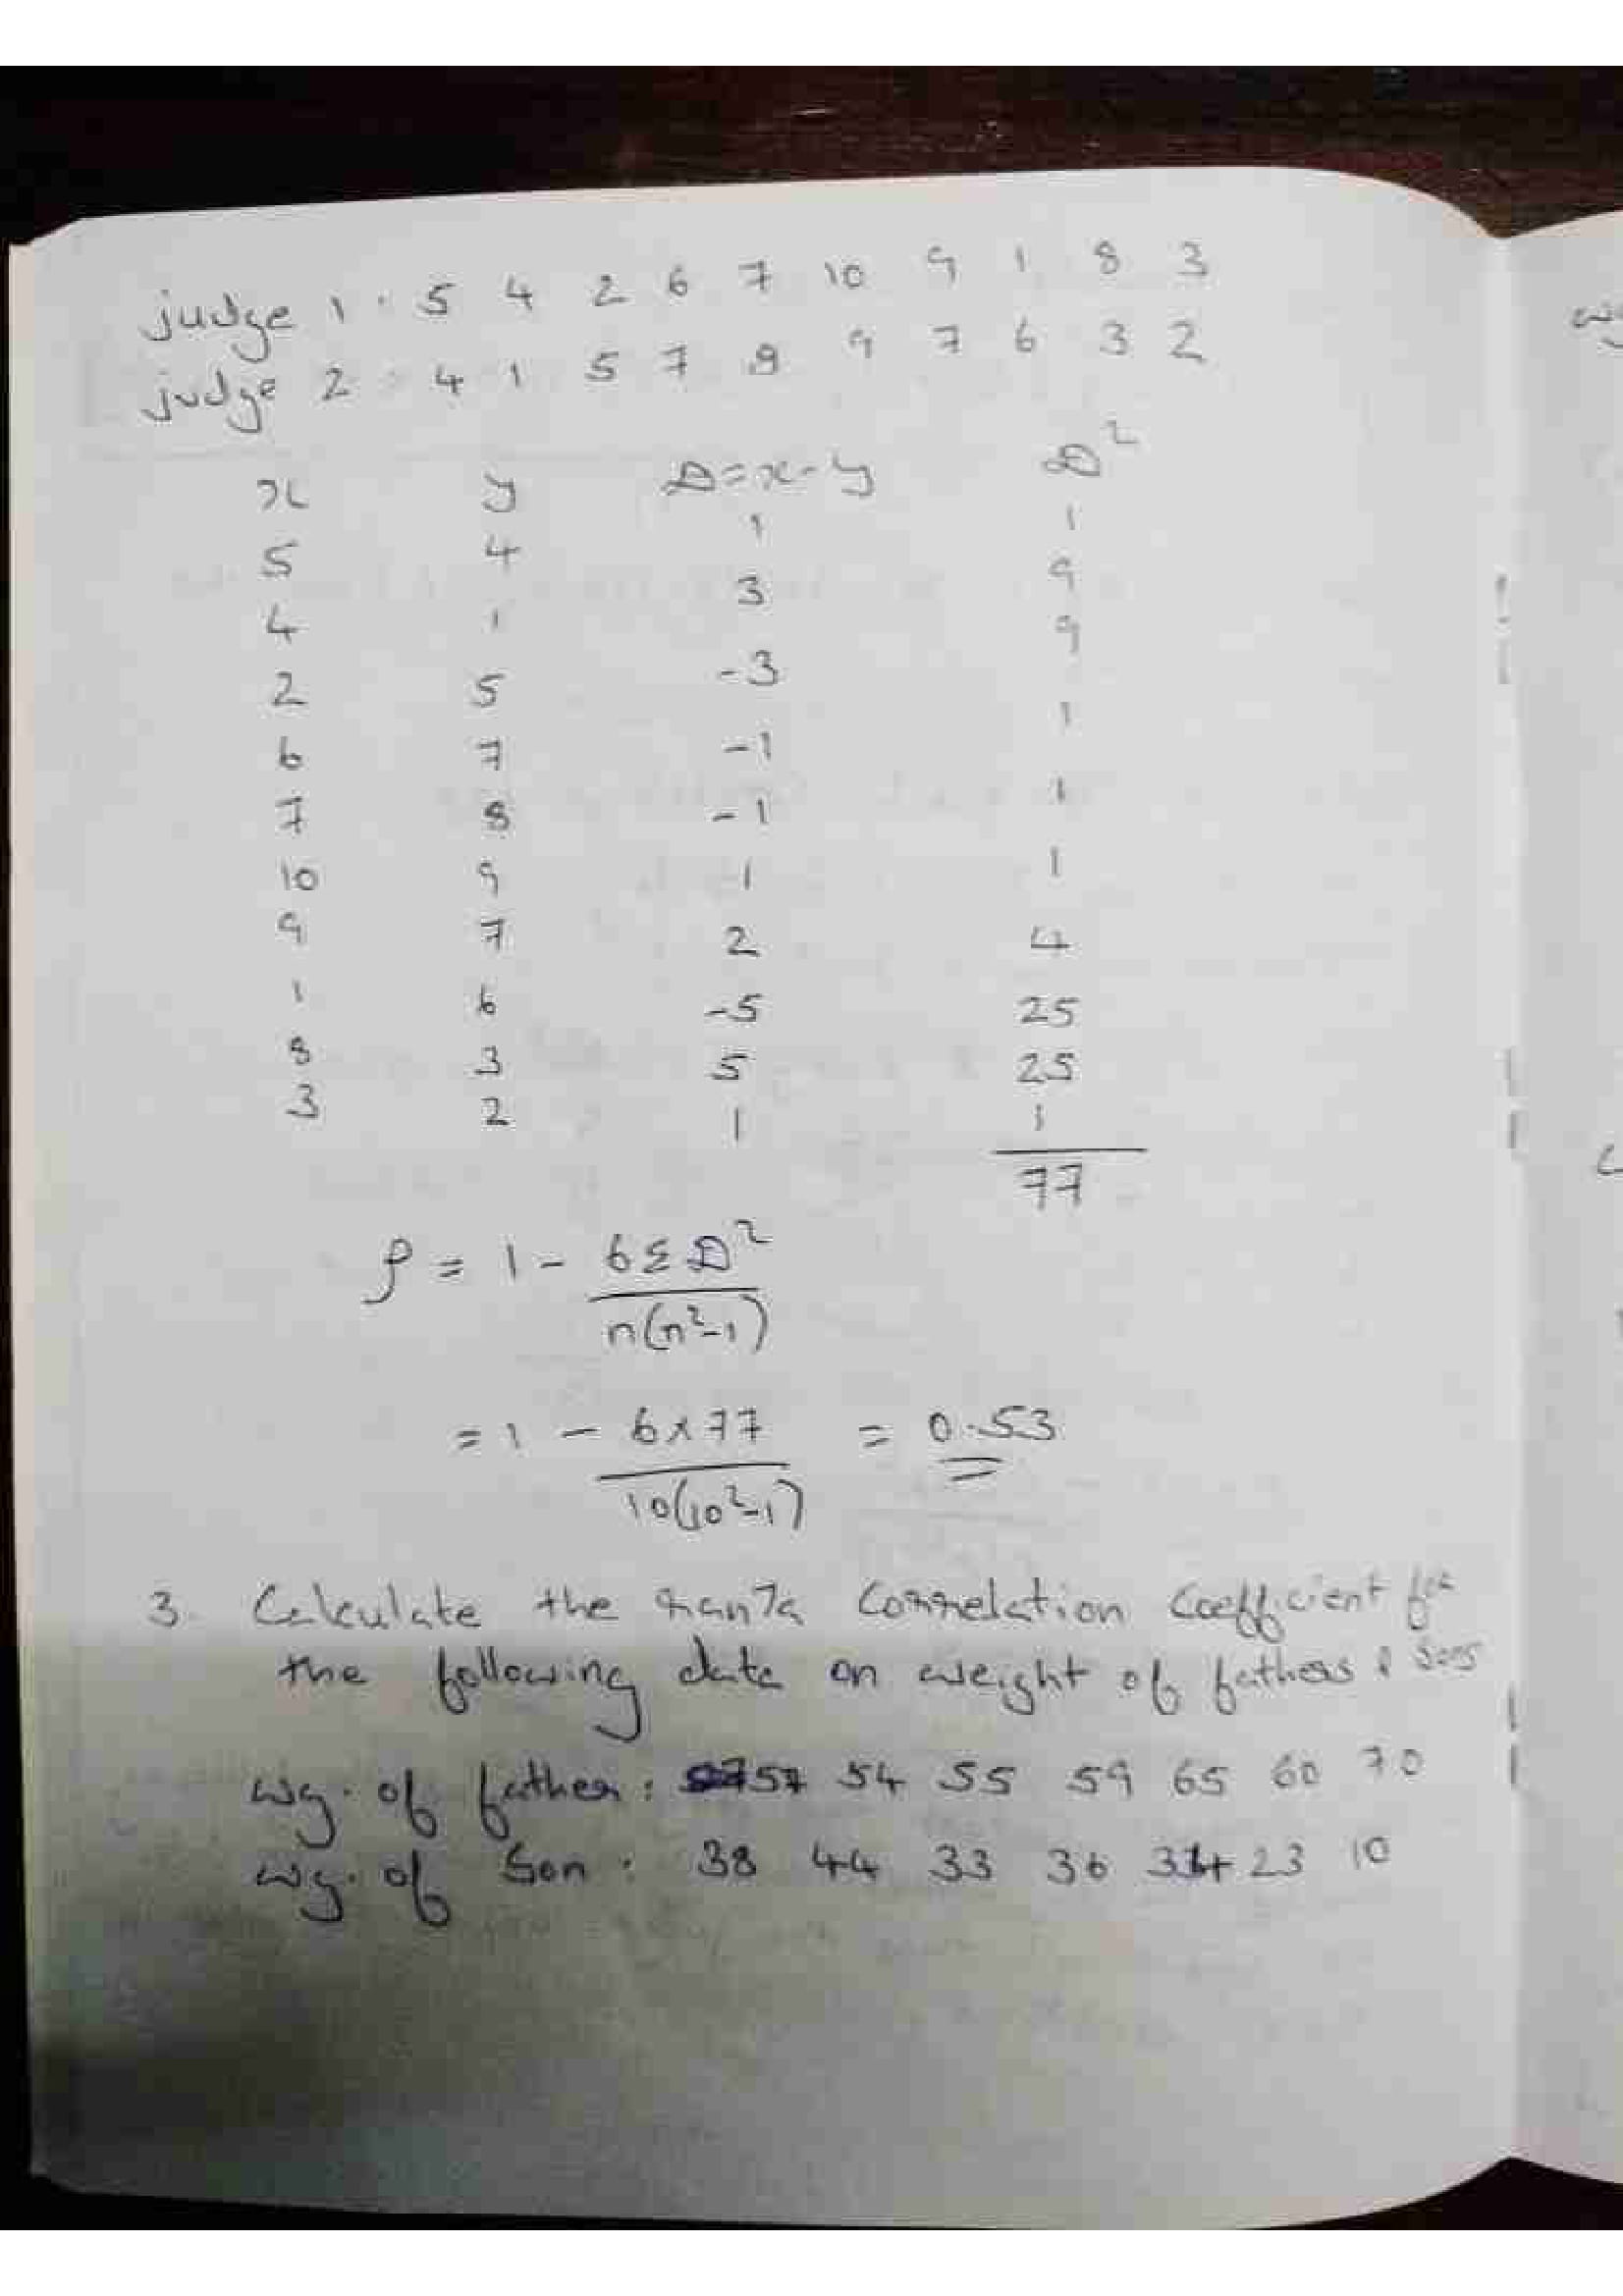 judge 1 : 5 4 2 6 7 10 9 1 8 3
judge 2 : 4 1 5 7 8 9 7 6 3 2
x y D=x-y D²
5 4 1 1
4 1 3 9
2 5 -3 9
6 7 -1 1
7 8 -1 1
10 9 1 1
9 7 2 4
1 6 -5 25
8 3 5 25
3 2 1 1
77
ρ = 1 - 6ΣD² / n(n²-1)
= 1 - 6x77 / 10(10²-1) = 0.53
3. Calculate the rank correlation coefficient for
the following data on weight of fathers & sons
wg. of father : 57 54 55 59 65 60 70
wg. of Son : 38 44 33 36 23 10